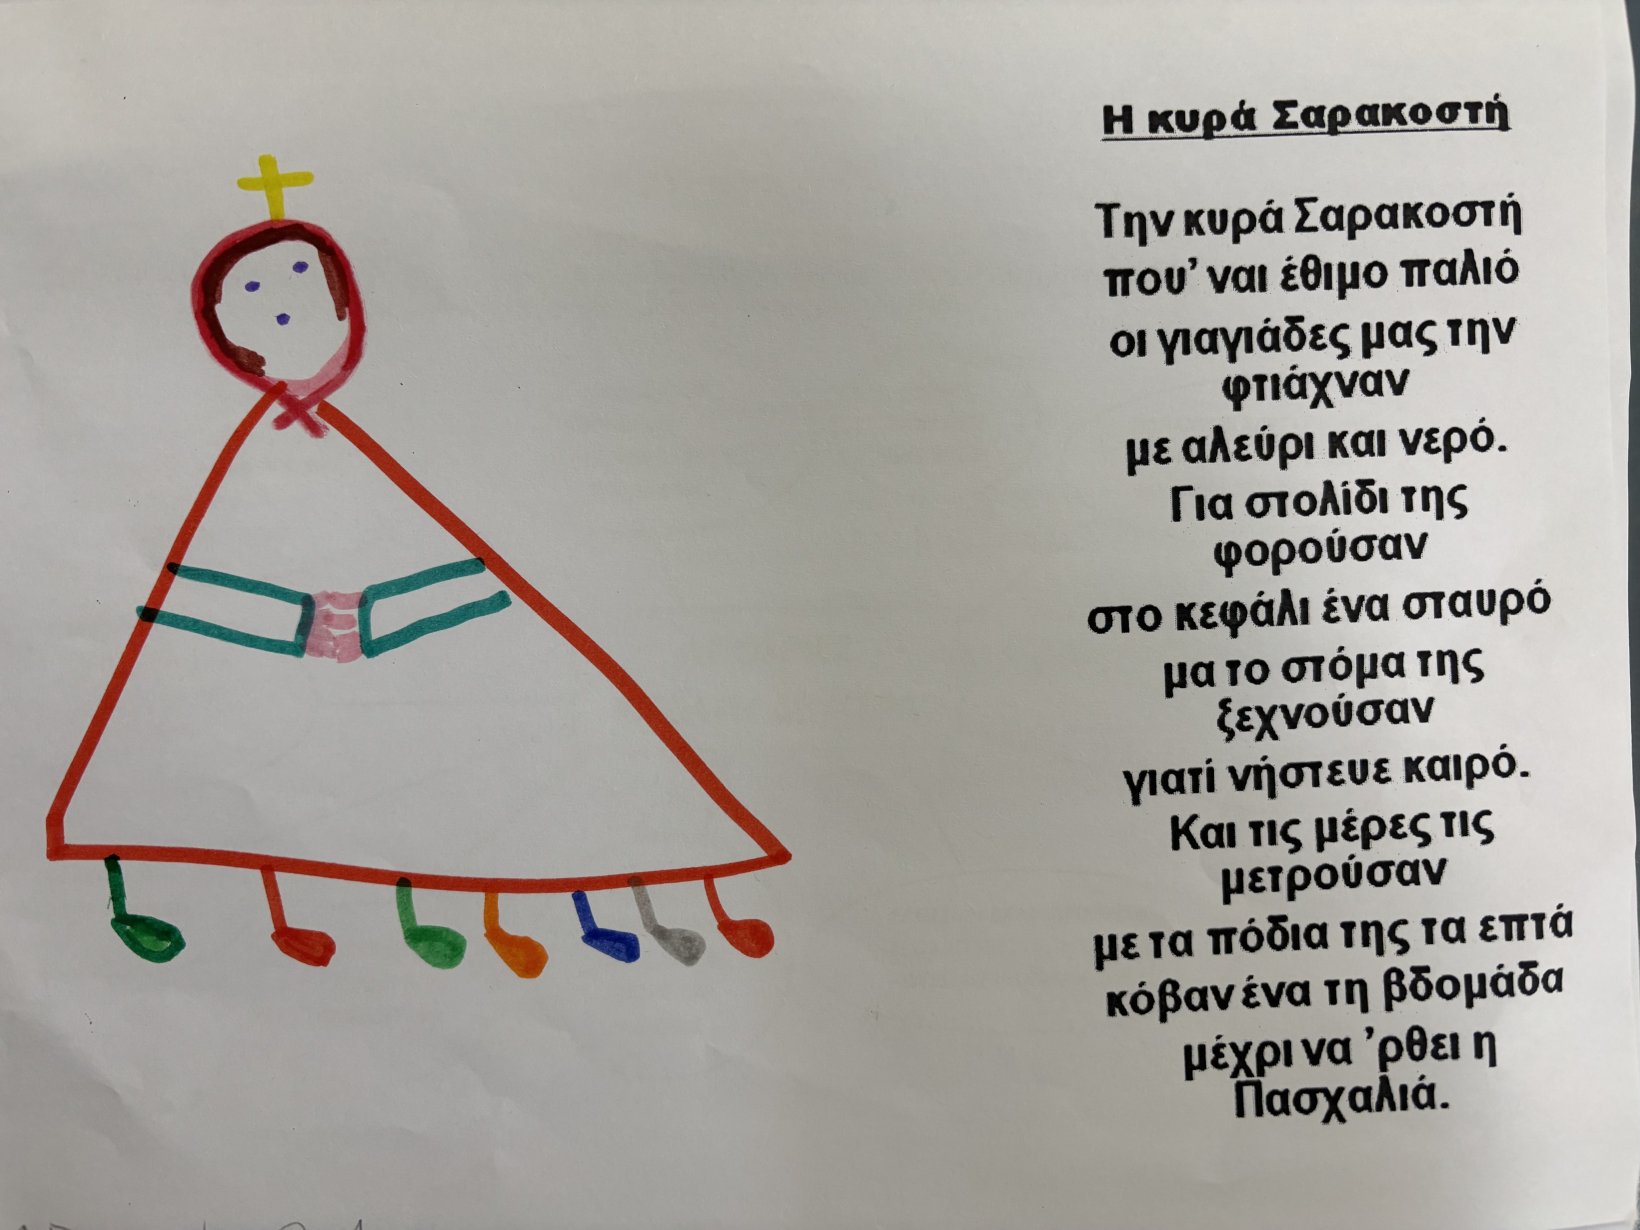 Η κυρά Σαρακοστή
Την κυρά Σαρακοστή
που’ ναι έθιμο παλιό
οι γιαγιάδες μας την
φτιάχναν
με αλεύρι και νερό.
Για στολίδι της
φορούσαν
στο κεφάλι ένα σταυρό
μα το στόμα της
ξεχνούσαν
γιατί νήστευε καιρό.
Και τις μέρες τις
μετρούσαν
με τα πόδια της τα επτά
κόβαν ένα τη βδομάδα
μέχρι να ’ρθει η
Πασχαλιά.